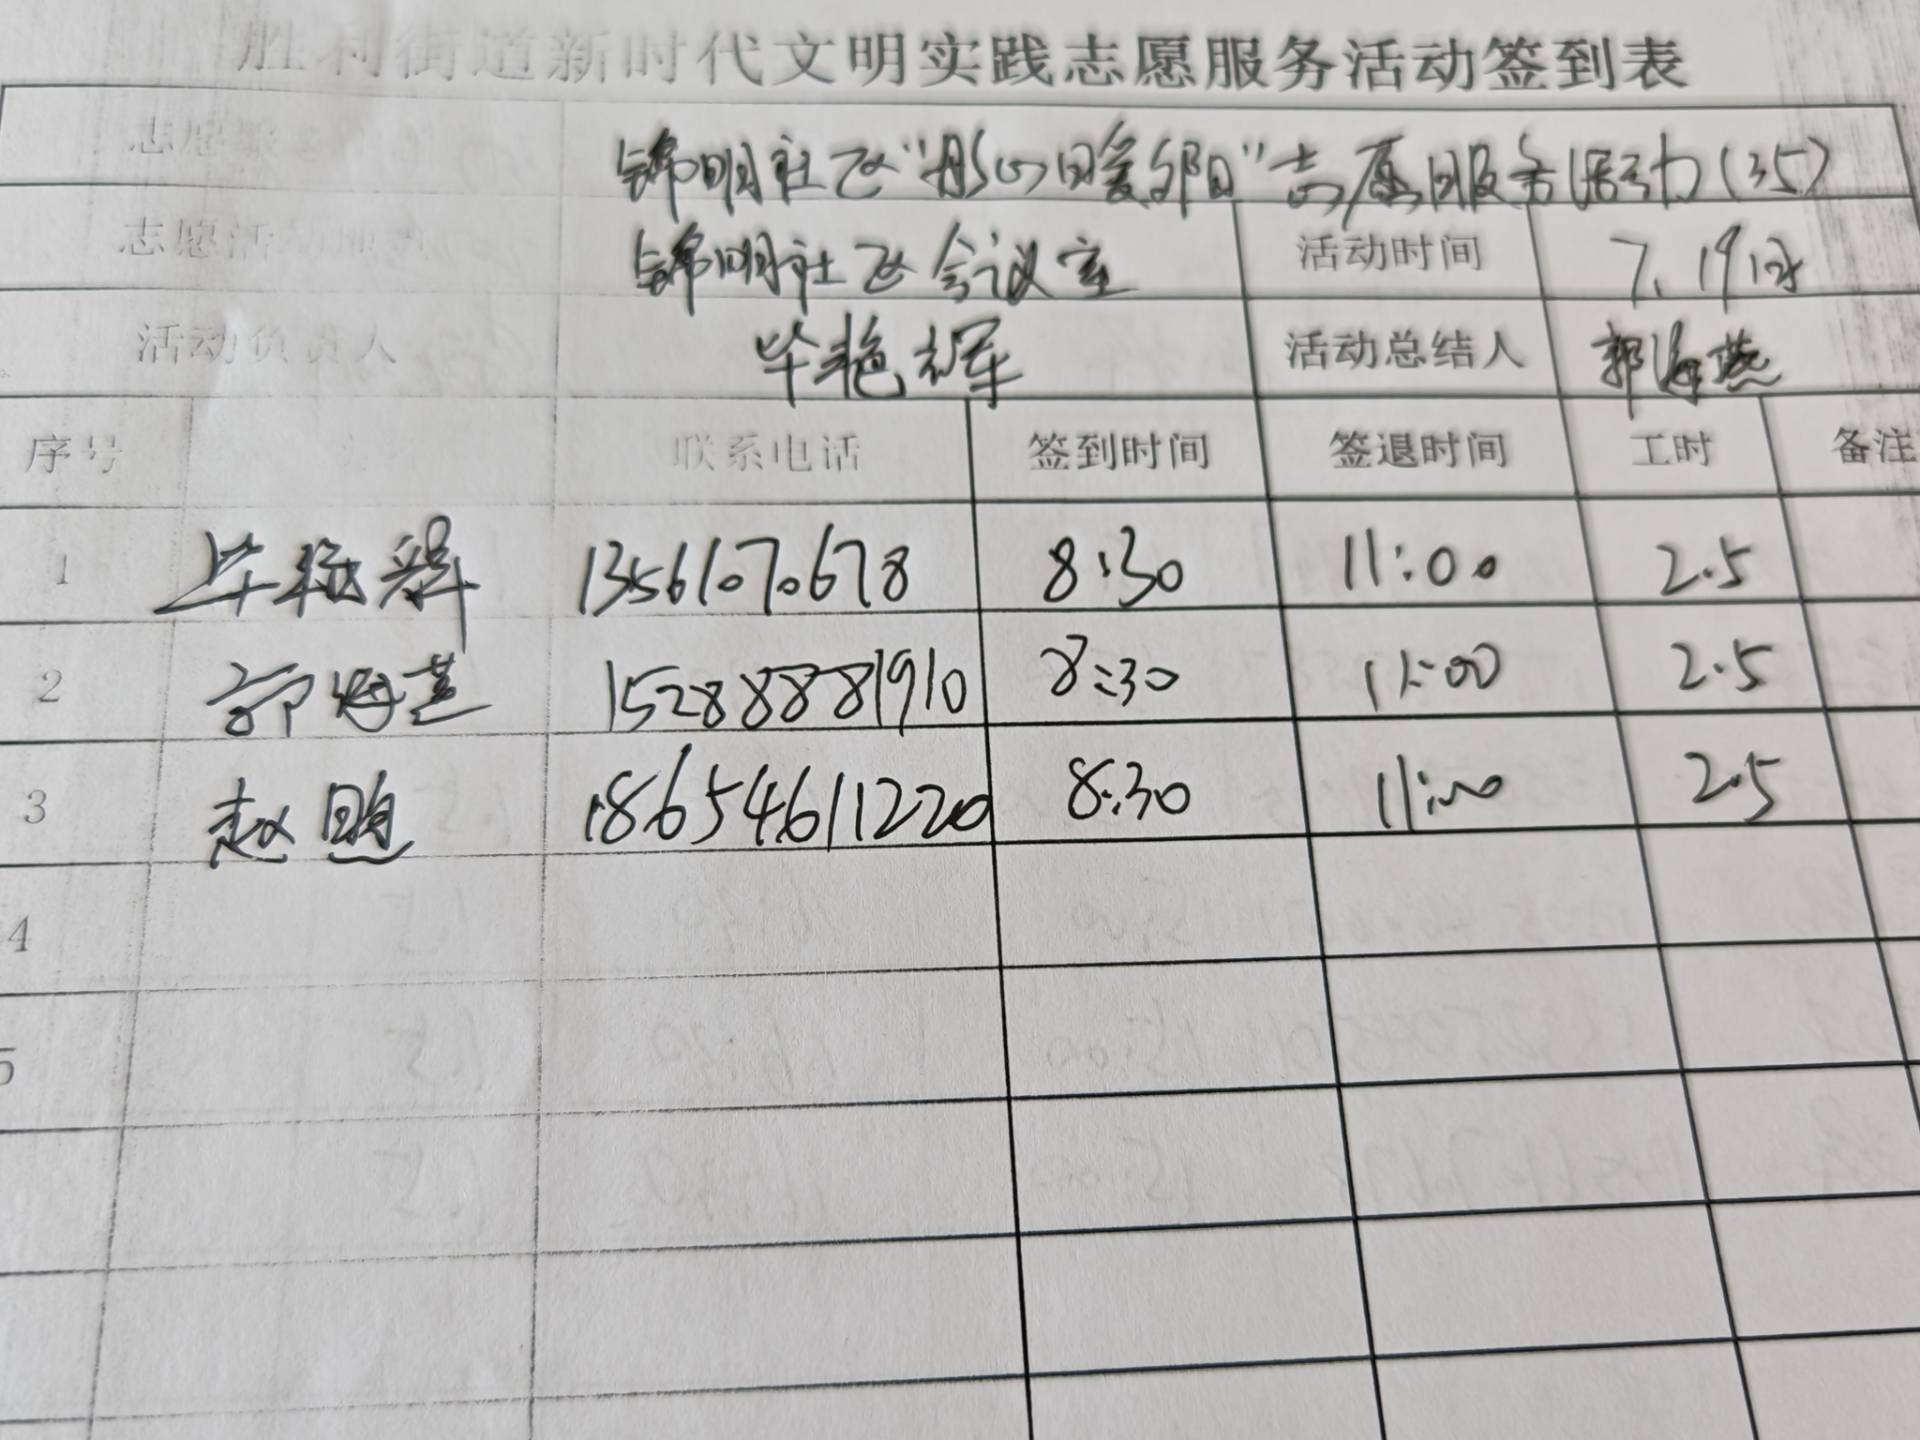 胜利街道新时代文明实践志愿服务活动签到表
志愿 锦明社区"彤心暖夕阳"志愿服务活动(35)
志愿活动地点 锦明社区会议室 活动时间 7.19日
活动负责人 毕艳 活动总结人 郭海燕
序号 联系电话 签到时间 签退时间 工时 备注
1 毕艳 13561070678 8:30 11:00 2.5
2 郭海燕 15288881910 8:30 11:00 2.5
3 赵 18654611220 8:30 11:00 2.5
4
5